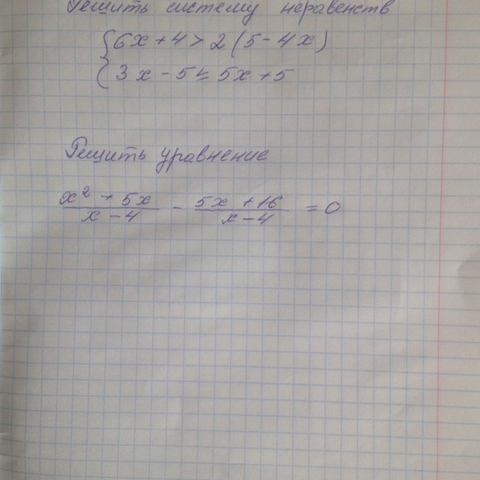 Решить систему неравенств
{ 6x + 4 > 2 (5 - 4x)
3x - 5 ≤ 5x + 5
Решить уравнение
(x² + 5x)/(x - 4) - (5x + 16)/(x - 4) = 0